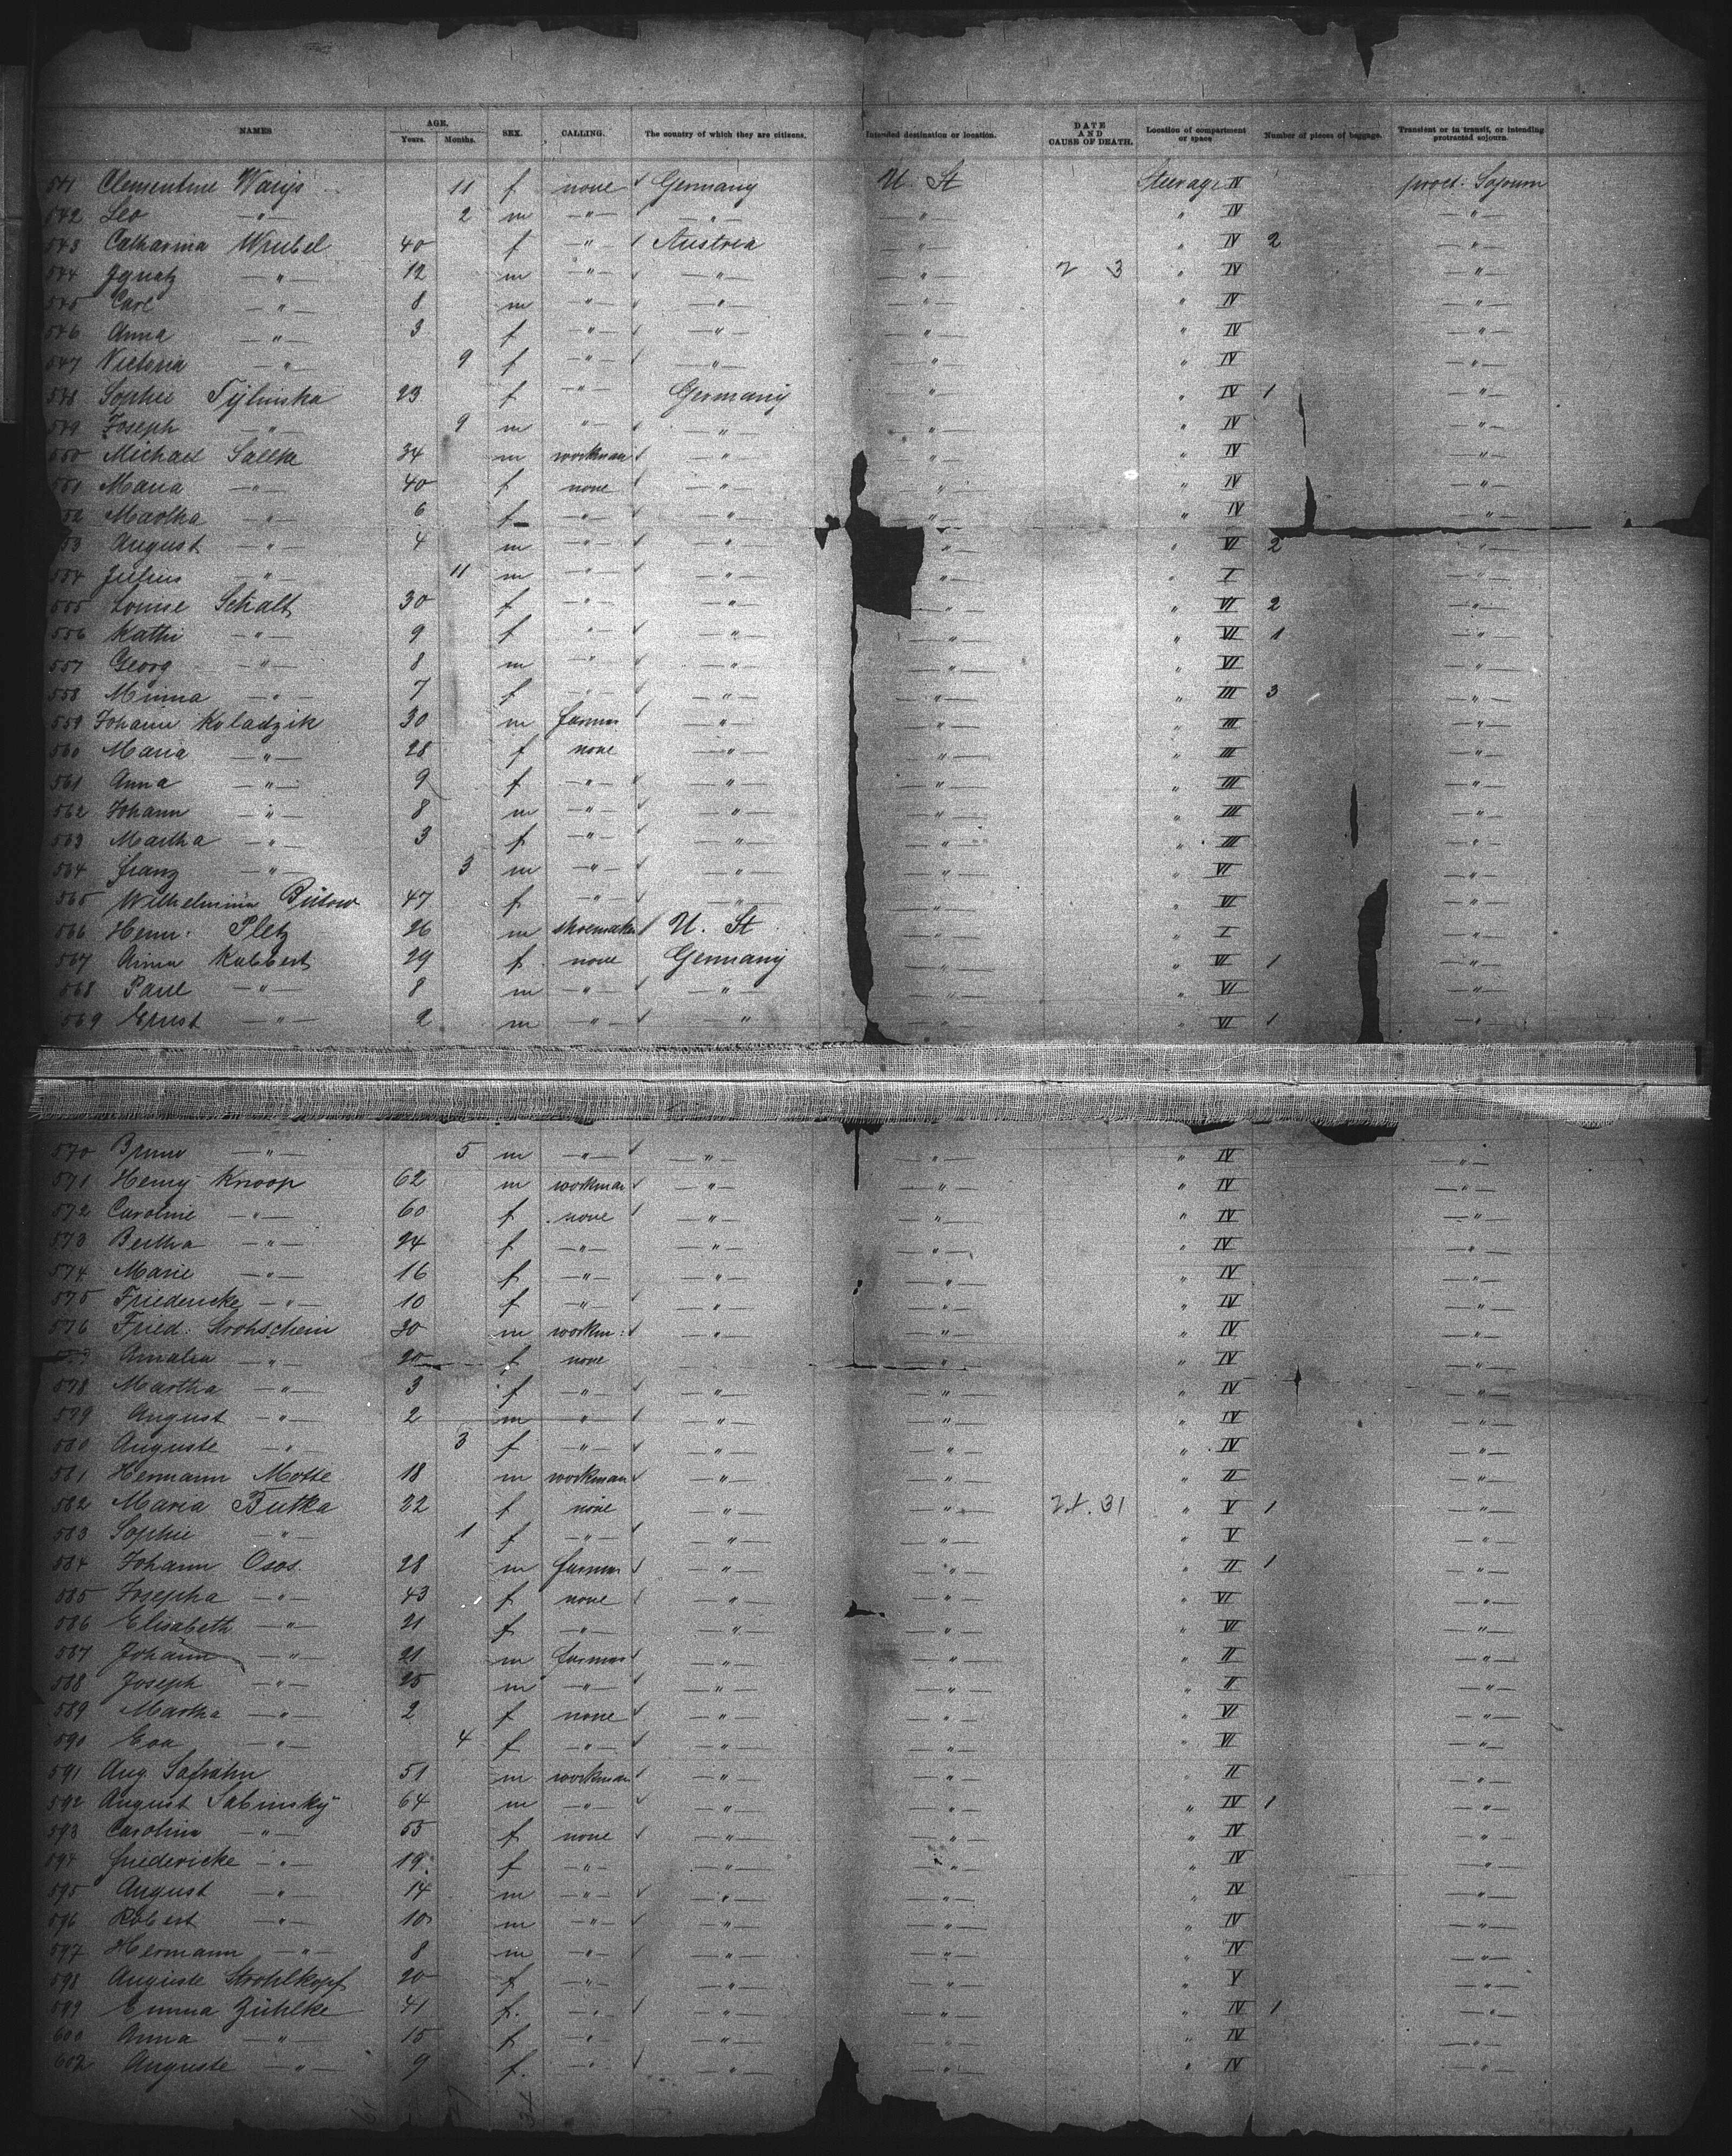 NAMES AGE. Years. Months. SEX. CALLING. The country of which they are citizens. Intended destination or location. DATE AND CAUSE OF DEATH. Location of compartment or space Number of pieces of baggage. Transient or in transit, or intending protracted sojourn.
541 Clementine 11 f none Germany U. St Steerage IV prot. Sojourn
542 Leo —"— 2 m —"— —"— —"— " IV —"—
543 Catharina Wrubel 40 f —"— Austria —"— " IV 2 —"—
544 Ignatz —"— 12 m —"— —"— —"— 2 3 " IV —"—
545 Carl —"— 8 m —"— —"— —"— " IV —"—
546 Anna —"— 3 f —"— —"— —"— " IV —"—
547 Victoria —"— 9 f —"— —"— —"— " IV —"—
548 Sophie Tylinska 23 f —"— Germany —"— " IV 1 —"—
549 Joseph —"— 9 m —"— —"— —"— " IV —"—
550 Michael 34 m workman —"— —"— " IV —"—
551 Maria —"— 40 f none —"— —"— " IV —"—
552 Martha —"— 6 f —"— —"— —"— " IV —"—
553 August —"— 4 m —"— —"— —"— " VI 2 —"—
554 Julius —"— 11 m —"— —"— —"— " I —"—
555 Louise Schalt 30 f —"— —"— —"— " VI 2 —"—
556 Kathi —"— 9 f —"— —"— —"— " VI 1 —"—
557 Georg —"— 8 m —"— —"— —"— " VI —"—
558 Minna —"— 7 f —"— —"— —"— " III 3 —"—
559 Johann Koladzik 30 m farmer —"— —"— " III —"—
560 Maria —"— 28 f none —"— —"— " III —"—
561 Anna —"— 9 f —"— —"— —"— " III —"—
562 Johann —"— 8 m —"— —"— —"— " III —"—
563 Martha —"— 3 f —"— —"— —"— " III —"—
564 Franz —"— 3 m —"— —"— —"— " VI —"—
565 Wilhelmina Bütow 47 f —"— —"— —"— " VI —"—
566 Henr. Pletz 26 m shoemaker U. St —"— " I —"—
567 Anna Kabbert 29 f none Germany —"— " VI 1 —"—
568 Paul —"— 8 m —"— —"— —"— " VI —"—
569 Ernst —"— 2 m —"— —"— —"— " VI 1 —"—
570 Bruno —"— 5 m —"— —"— —"— " IV —"—
571 Henry Knoop 62 m workman —"— —"— " IV —"—
572 Caroline —"— 60 f none —"— —"— " IV —"—
573 Bertha —"— 24 f —"— —"— —"— " IV —"—
574 Marie —"— 16 f —"— —"— —"— " IV —"—
575 Friedericke —"— 10 f —"— —"— —"— " IV —"—
576 Fried. Strohschein 30 m workm: —"— —"— " IV —"—
577 Amalia —"— 20 f none —"— " IV —"—
578 Martha —"— 3 f —"— —"— —"— " IV —"—
579 August —"— 2 m —"— —"— —"— " IV —"—
580 Auguste —"— 3 f —"— —"— —"— " IV —"—
581 Hermann Motte 18 m workman —"— —"— " II —"—
582 Maria Butka 22 f none —"— —"— " V 1 —"—
583 Sophie —"— 1 f —"— —"— —"— " V —"—
584 Johann Osos 28 m farmer —"— —"— " II 1 —"—
585 Josepha —"— 43 f none —"— —"— " VI —"—
586 Elisabeth —"— 21 f —"— —"— —"— " VI —"—
587 Johann —"— 21 m farmer —"— —"— " II —"—
588 Joseph —"— 25 m —"— —"— —"— " II —"—
589 Martha —"— 2 f none —"— —"— " VI —"—
590 Eva —"— 4 f —"— —"— —"— " VI —"—
591 Aug. Safrahn 51 m workman —"— —"— " II —"—
592 August Sabinsky 64 m —"— —"— —"— " IV 1 —"—
593 Carolina —"— 55 f none —"— —"— " IV —"—
594 Friedericke —"— 19 f —"— —"— —"— " IV —"—
595 August —"— 14 m —"— —"— —"— " IV —"—
596 Robert —"— 10 m —"— —"— —"— " IV —"—
597 Hermann —"— 8 m —"— —"— —"— " IV —"—
598 Auguste Strohlkopf 20 f —"— —"— —"— " V —"—
599 Emma Zühlke 41 f. —"— —"— —"— " IV 1 —"—
600 Anna —"— 15 f —"— —"— —"— " IV —"—
602 Auguste —"— 9 f. —"— —"— —"— " IV —"—